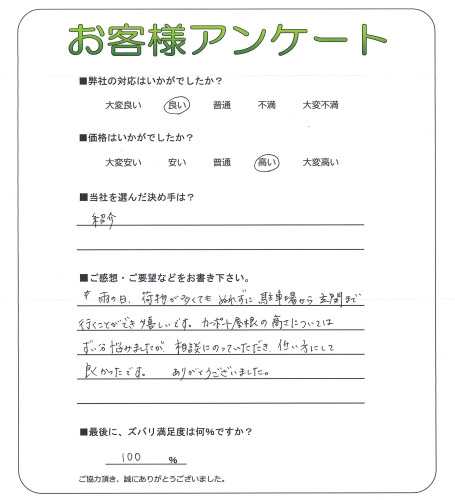 お客様アンケート
■弊社の対応はいかがでしたか？
大変良い 良い 普通 不満 大変不満
■価格はいかがでしたか？
大変安い 安い 普通 高い 大変高い
■当社を選んだ決め手は？
紹介
■ご感想・ご要望などをお書き下さい。
雨の日、荷物が多くても ぬれずに 駐車場から 玄関まで
行くことができ嬉しいです。カーポート屋根の高さについては
ずい分悩みましたが、相談にのっていただき、低い方にして
良かったです。 ありがとうございました。
■最後に、ズバリ満足度は何%ですか？
100 %
ご協力頂き、誠にありがとうございました。